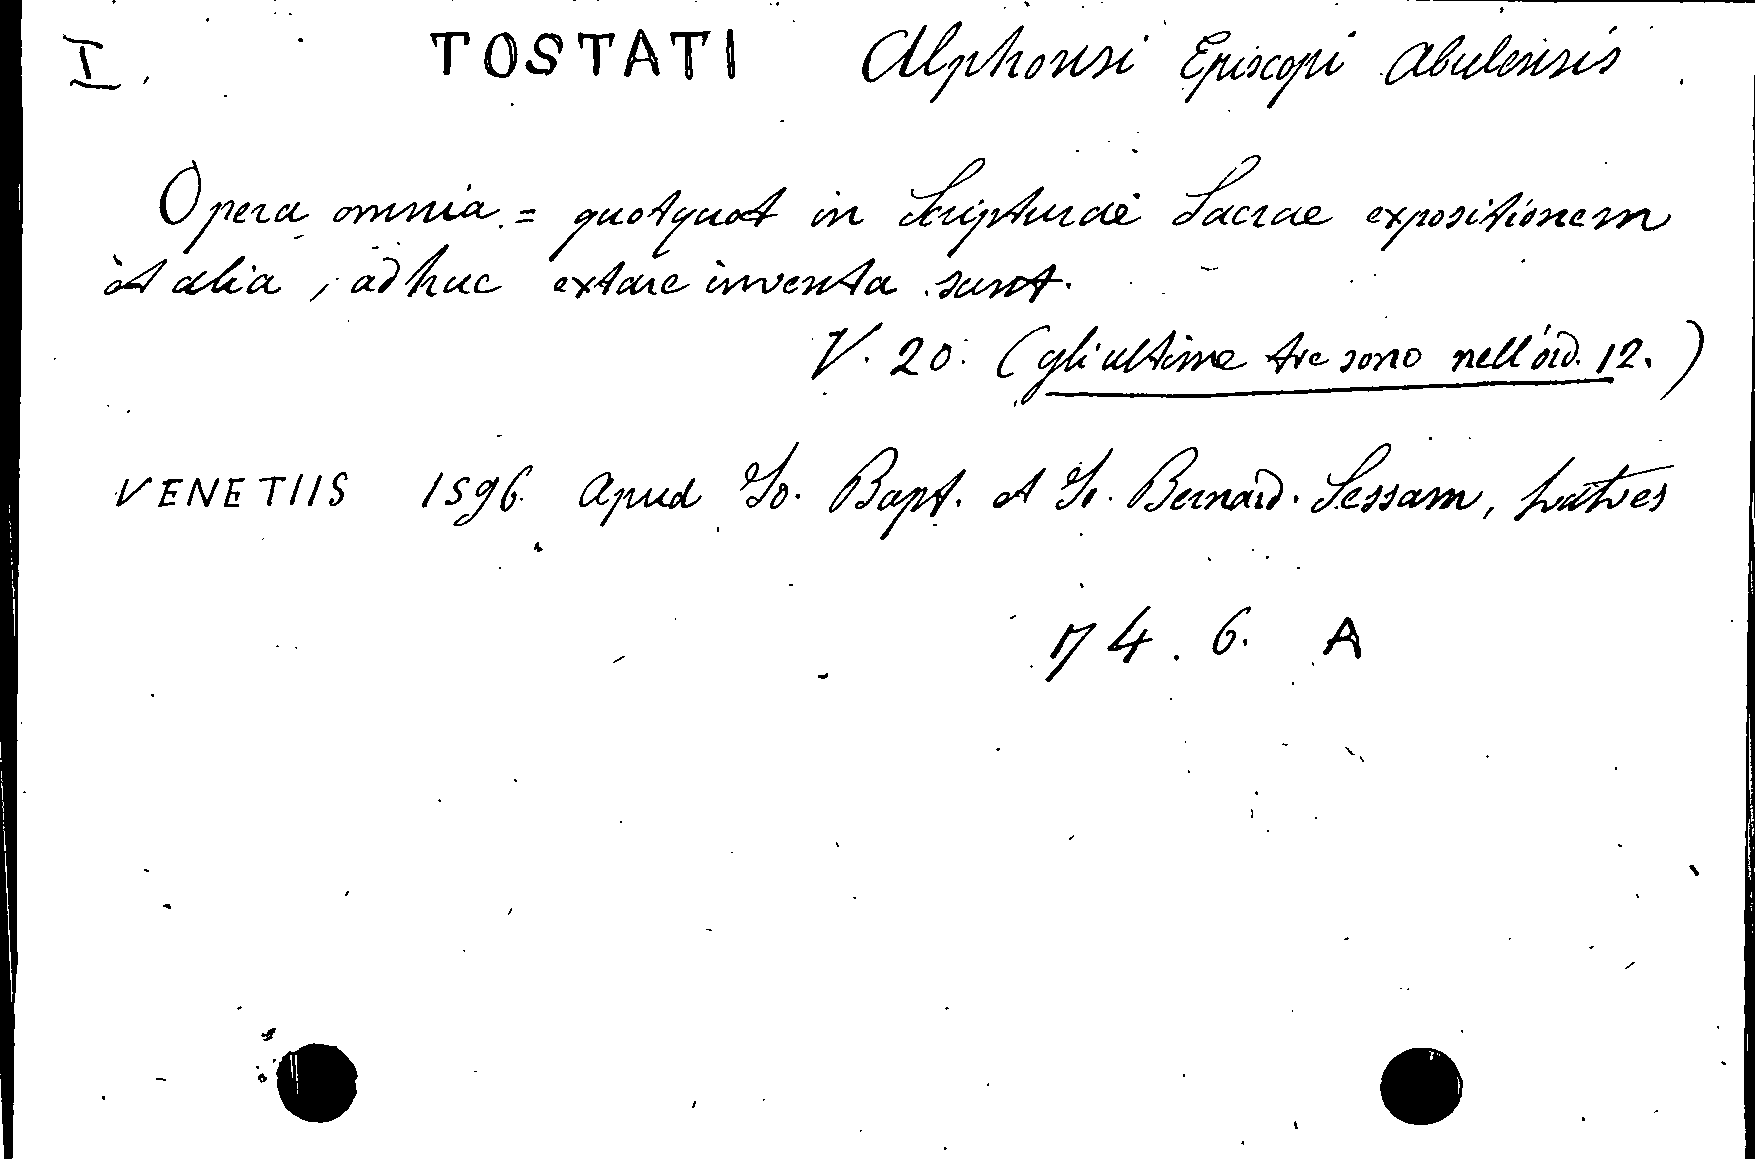 I. TOSTATI Alphonsi Episcopi Abulensis
Opera omnia = quotquot in Scripturae Sacrae expositionem
et alia, adhuc extare inventa sunt.
V. 20. (gli ultime tre sono nell'ord. 12.)
VENETIIS 1596. Apud Io. Bapt. et Io. Bernard. Sessam, fratres
74. 6. A